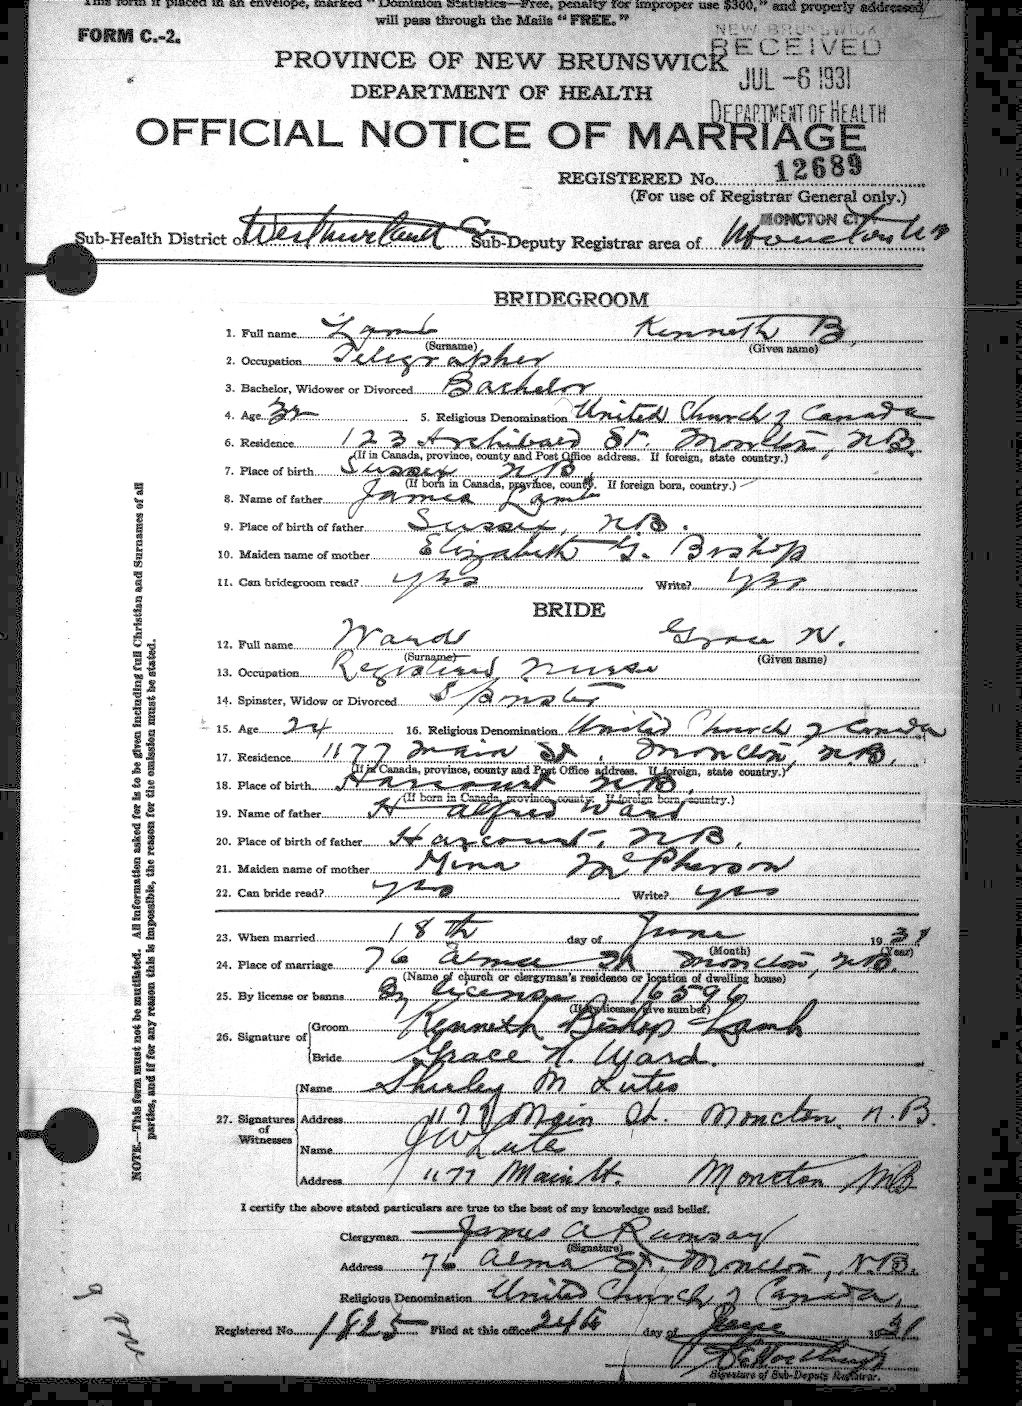 This form if placed in an envelope, marked "Dominion Statistics—Free, penalty for improper use $300," and properly addressed
will pass through the Mails "FREE."
FORM C.-2.
NEW BRUNSWICK
RECEIVED
JUL -6 1931
DEPARTMENT OF HEALTH
PROVINCE OF NEW BRUNSWICK
DEPARTMENT OF HEALTH
OFFICIAL NOTICE OF MARRIAGE
REGISTERED No. 12689
(For use of Registrar General only.)
MONCTON CITY
Sub-Health District of Westmorland Co Sub-Deputy Registrar area of Moncton NB
BRIDEGROOM
1. Full name Lamb Kenneth B.
(Surname) (Given name)
2. Occupation Telegrapher
3. Bachelor, Widower or Divorced Bachelor
4. Age 32 5. Religious Denomination United Church of Canada
6. Residence 123 Archibald St. Moncton, N.B.
(If in Canada, province, county and Post Office address. If foreign, state country.)
7. Place of birth Sussex N.B.
(If born in Canada, province, county. If foreign born, country.)
8. Name of father James Lamb
9. Place of birth of father Sussex, N.B.
10. Maiden name of mother Elizabeth G. Bishop
11. Can bridegroom read? yes Write? yes
BRIDE
12. Full name Ward Grace N.
(Surname) (Given name)
13. Occupation Registered Nurse
14. Spinster, Widow or Divorced Spinster
15. Age 24 16. Religious Denomination United Church of Canada
17. Residence 1177 Main St. Moncton, N.B.
(If in Canada, province, county and Post Office address. If foreign, state country.)
18. Place of birth Harcourt N.B.
(If born in Canada, province, county. If foreign born, country.)
19. Name of father H Alfred Ward
20. Place of birth of father Harcourt, N.B.
21. Maiden name of mother Mina McPherson
22. Can bride read? yes Write? yes
23. When married 18th day of June 1931
(Month) (Year)
24. Place of marriage 76 Alma St Moncton, N.B.
(Name of church or clergyman's residence or location of dwelling house)
25. By license or banns By license 16596
(If by license, give number)
26. Signature of Groom Kenneth Bishop Lamb
Bride Grace N. Ward.
27. Signatures of Witnesses
Name Shirley M Lutes
Address 1177 Main St. Moncton. N.B.
Name J W Lutes
Address 1177 Main St. Moncton NB
I certify the above stated particulars are true to the best of my knowledge and belief.
Clergyman James A Ramsay
(Signature)
Address 76 Alma St. Moncton, N.B.
Religious Denomination United Church of Canada.
Registered No. 1825 Filed at this office 24th day of June 1931
Signature of Sub-Deputy Registrar.
NOTE.—This form must not be mutilated. All information asked for is to be given including full Christian and Surnames of all
parties, and if for any reason this is impossible, the reason for the omission must be stated.